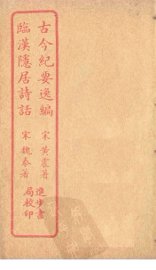 古今紀要逸編
宋 黃震著
臨漢隱居詩話
宋 魏泰著
進步書
局校印